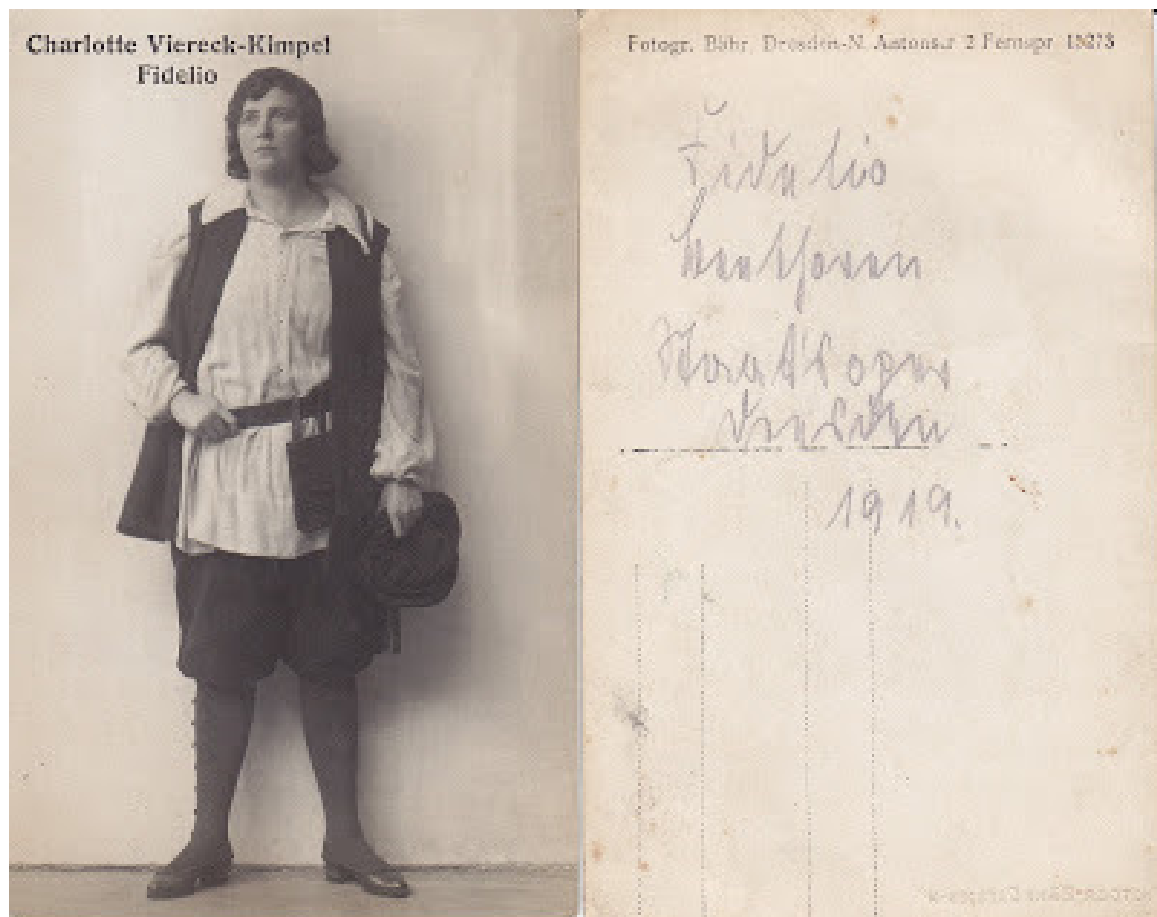 Charlotte Viereck-Kimpel
Fidelio
Fotogr. Bähr, Dresden-N. Antonstr 2 Fernspr 15273
Fidelio
Beethoven
Staatsoper
Dresden
1919.